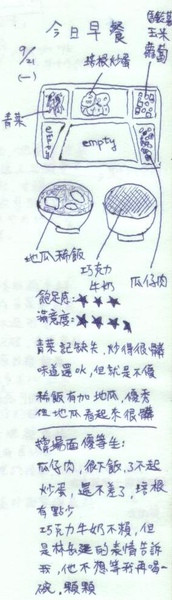 今日早餐
9/21
(一)
玉米
葡萄
培根炒蛋
青菜
empty
empty
瓜仔肉
地瓜稀飯
巧克力
牛奶
飽足度:★★★
滿意度:★★★
青菜記缺失,炒得很髒
味道還ok,但就是不優
稀飯有加地瓜,優秀
但地瓜看起來很髒
檯面優等生:
瓜仔肉,微下飯,了不起
炒蛋,還不差了,培根
有點少
巧克力牛奶不賴,但
是林的表情告訴
我,他不想等我再喝一
碗,顆顆